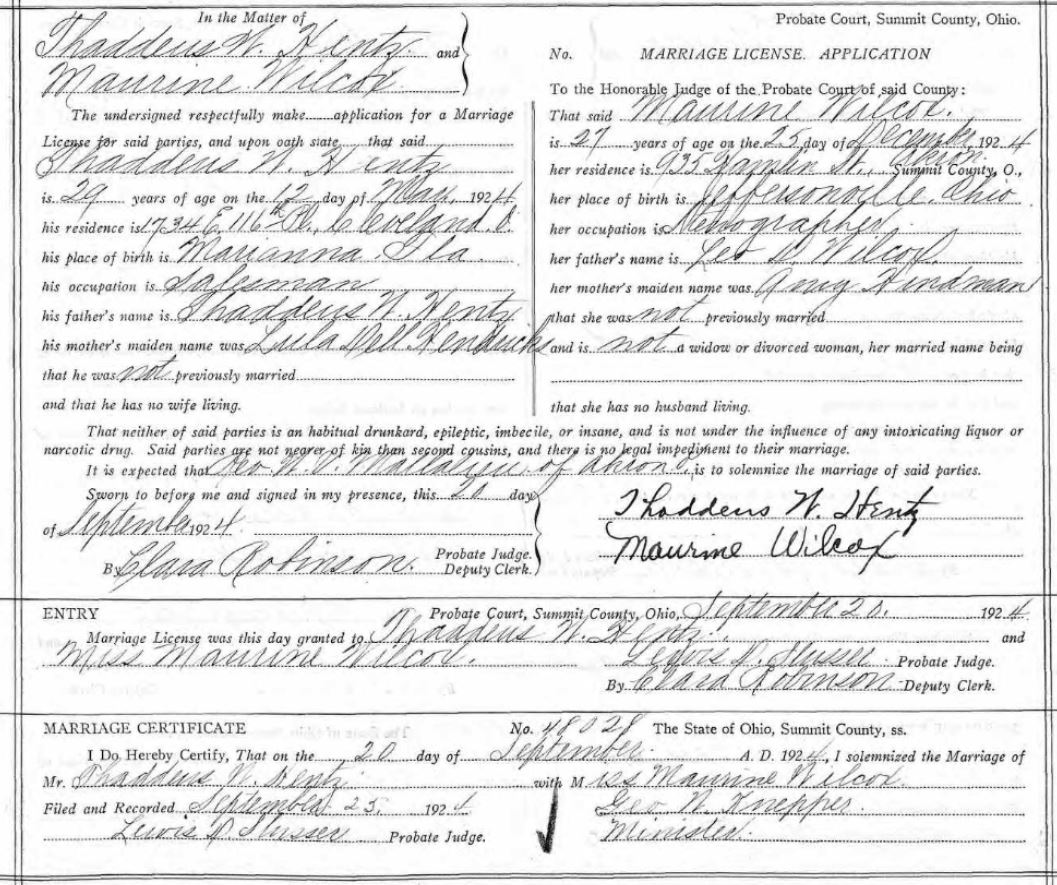 In the Matter of
Thaddeus W. Hentz and
Maurine Wilcox
The undersigned respectfully make application for a Marriage
License for said parties, and upon oath state that said
Thaddeus W. Hentz
is 29 years of age on the 12 day of May, 1924
his residence is 1734 E. 116th Pl., Cleveland, O.
his place of birth is Marianna, Fla
his occupation is Salesman
his father's name is Thaddeus W. Hentz
his mother's maiden name was Lula Dell Hendricks
that he was not previously married
and that he has no wife living.
Probate Court, Summit County, Ohio.
No. MARRIAGE LICENSE. APPLICATION
To the Honorable Judge of the Probate Court of said County:
That said Maurine Wilcox.
is 27 years of age on the 25 day of December, 1924
her residence is 935 Hamlin St., Akron Summit County, O.,
her place of birth is Jeffersonville, Ohio
her occupation is Stenographer
her father's name is Leo D. Wilcox.
her mother's maiden name was Amy Hindman
that she was not previously married
and is not a widow or divorced woman, her married name being
that she has no husband living.
That neither of said parties is an habitual drunkard, epileptic, imbecile, or insane, and is not under the influence of any intoxicating liquor or
narcotic drug. Said parties are not nearer of kin than second cousins, and there is no legal impediment to their marriage.
It is expected that of Akron O. is to solemnize the marriage of said parties.
Sworn to before me and signed in my presence, this 20 day
of September 1924
Probate Judge.
By Clara Robinson. Deputy Clerk.
Thaddeus W. Hentz
Maurine Wilcox
ENTRY Probate Court, Summit County, Ohio, September 20. 1924
Marriage License was this day granted to Thaddeus W. Hentz and
Miss Maurine Wilcox. Lewis D. Slusser Probate Judge.
By Clara Robinson Deputy Clerk.
MARRIAGE CERTIFICATE No. 48028 The State of Ohio, Summit County, ss.
I Do Hereby Certify, That on the 20 day of September A. D. 1924, I solemnized the Marriage of
Mr. Thaddeus W. Hentz with Miss Maurine Wilcox.
Filed and Recorded September 25, 1924 Geo W. Knepper
Lewis D. Slusser Probate Judge. Minister.